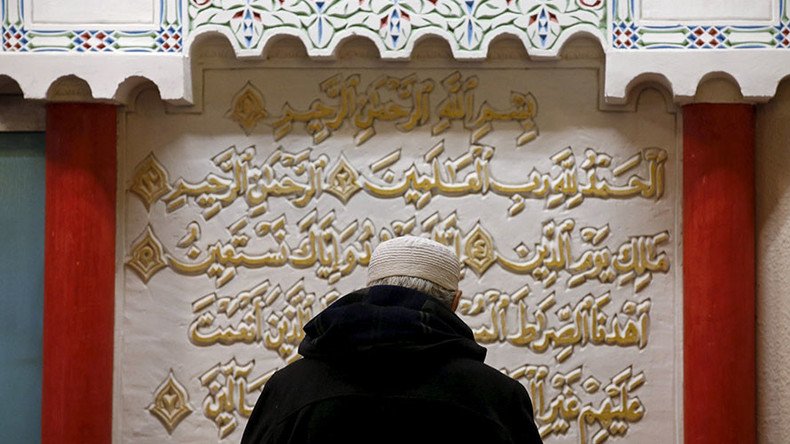 بسم الله الرحمن الرحيم ١
الحمد لله رب العالمين ٢ الرحمن الرحيم ٣
مالك يوم الدين ٤ وإياك نستعين ٥
اهدنا الصراط الذين أنعمت
عليهم غير ٧